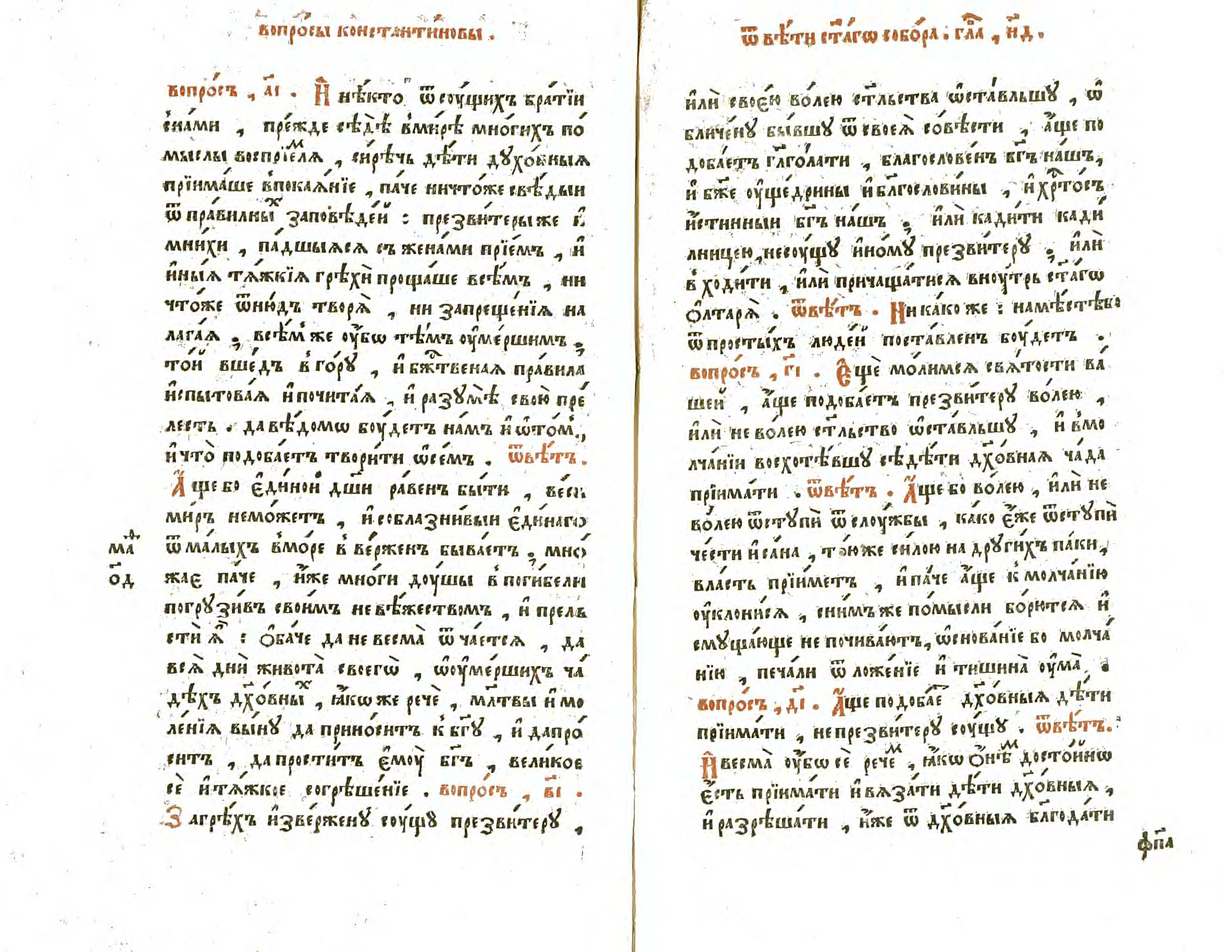 вопро́сы константи́новы .
вопро́съ , а҃і . И҆ нѣ́кто ѿ сѹ́щихъ бра́тїи
с на́ми , пре́жде сѣдѣ̀ в ми́рѣ мно́гихъ по́
мыслы воспрїе́млѧ , си́рѣчь дѣ́ти дꙋхо́вныѧ
прїима́ше в покаѧ́нїе , па́че ничто́же свѣ́дыи
ѿ пра́вилныⷯ за́повѣдей : презви́теры же и҆
мни́хи , па́дшыѧсѧ съ жена́ми прїе́мъ , и҆
и҆ны́ѧ тѧ́жкїѧ грѣхѝ проща́ше всѣ́мъ , ни
что́же ѿню́дъ творѧ̀ , ни запреще́нїѧ на
лага́ѧ . всѣ́м же ѹ҆́бѡ тѣ́мъ ѹ҆ме́ршимъ .
то́й вше́дъ в го́рꙋ , и҆ бж҃е́ственаѧ пра́вила
и҆спыто́ваѧ и҆ почита́ѧ , и҆ разꙋмѣ̀ свою̀ пре́
лесть . да вѣ́домѡ бꙋ́детъ на́мъ и҆ ѡ҆ то́м ,
и҆ что̀ подоба́етъ твори́ти ѡ҆ се́мъ . ѿвѣ́тъ .
А҆́ще бо є҆ди́ной дш҃и ра́венъ бы́ти , ве́сь
ми́ръ не мо́жетъ , и҆ соблазни́выи є҆ди́наго
ма ѿ ма́лыхъ в мо́ре вве́рженъ быва́етъ . мно́
о҃д жае па́че , и҆́же мно́ги дѹ́шы в поги́бели
погрꙋзи́въ свои́мъ невѣ́жествомъ , и҆ преле
сти ѧ҆̀ : ѻ҆ба́че да не весма̀ ѿча́етсѧ , да
всѧ̀ днѝ живота̀ своегѡ̀ , ѡ҆ ѹ҆ме́рших ча́
дѣхъ дх҃о́вныⷯ , ꙗ҆́коже речѐ , мл҃твы и҆ мо
ле́нїѧ вы́нꙋ да прино́ситъ к бг҃ꙋ , и҆ да про́
ситъ , да прости́тъ є҆мѹ̀ бг҃ъ , вели́кое
сѐ и҆ тѧ́жкое согрѣше́нїе . вопро́съ , в҃і .
За грѣ́хъ и҆зве́рженꙋ сѹ́щꙋ презви́терꙋ ,
ѿвѣ́ти ст҃а́гѡ собо́ра . гла̀ , н҃д .
и҆лѝ свое́ю во́лею ст҃льства ѡ҆ста́вльшꙋ , ѡ҆
бличе́нꙋ бы́вшꙋ ѿ своеѧ̀ со́вѣсти , а҆́ще по
доба́етъ гл҃го́лати , благослове́нъ бг҃ъ на́шъ ,
и҆ бж҃е ѹ҆ще́дрины и҆ бл҃гослови́ны , и҆ хрⷭ҇то́съ
и҆́стинныи бг҃ъ на́шъ . и҆лѝ кади́ти кади́
лницею , не сѹ́щꙋ и҆но́мꙋ презви́терꙋ . и҆лѝ
входи́ти , и҆лѝ причаща́тисѧ внѹ́трь ст҃а́гѡ
ѻ҆лтарѧ̀ . ѿвѣ́тъ . Ника́коже : на мѣ́стѣ во
ѿ просты́хъ люде́й поста́вленъ бѹ́детъ .
вопро́съ , г҃і . Є҆щѐ мо́лимсѧ свѧ́тости ва́
шей , а҆́ще подоба́етъ презви́терꙋ во́лею ,
и҆лѝ не во́лею ст҃льство ѡ҆ста́вльшꙋ , и҆ в мо
лча́нїи восхотѣ́вшꙋ сѣдѣ́ти дх҃о́внаѧ ча́да
прїима́ти . ѿвѣ́тъ . А҆́ще бо во́лею , и҆лѝ не
во́лею ѿстꙋпѝ ѿ слѹ́жбы , ка́ко є҆́же ѿстꙋпѝ
че́сти и҆ са́на , то́ю же си́лою на дрꙋги́хъ па́ки ,
вла́сть прїи́метъ , и҆ па́че а҆́ще к молча́нїю
ѹ҆клони́сѧ , с ни́мъ же по́мысли бо́рютсѧ и҆
смꙋща́юще не почива́ютъ , ѡ҆снова́нїе бо молча́
нїю , печа́ли ѿложе́нїе и҆ тишина̀ ѹ҆ма̀ .
вопро́съ , д҃і . А҆́ще подоба́еⷮ дх҃о́вныѧ дѣ́ти
прїима́ти , не презви́терꙋ сѹ́щꙋ . ѿвѣ́тъ .
И҆ весма̀ ѹ҆́бѡ сѐ рече́ⷨ , ꙗ҆́кѡ ѻ҆нѣ́ⷨ досто́йнѡ
є҆́сть прїима́ти и҆ вѧза́ти дѣ́ти дх҃о́вныѧ ,
и҆ разрѣша́ти , и҆́же ѿ дх҃о́вныѧ бл҃года́ти
ф҃па